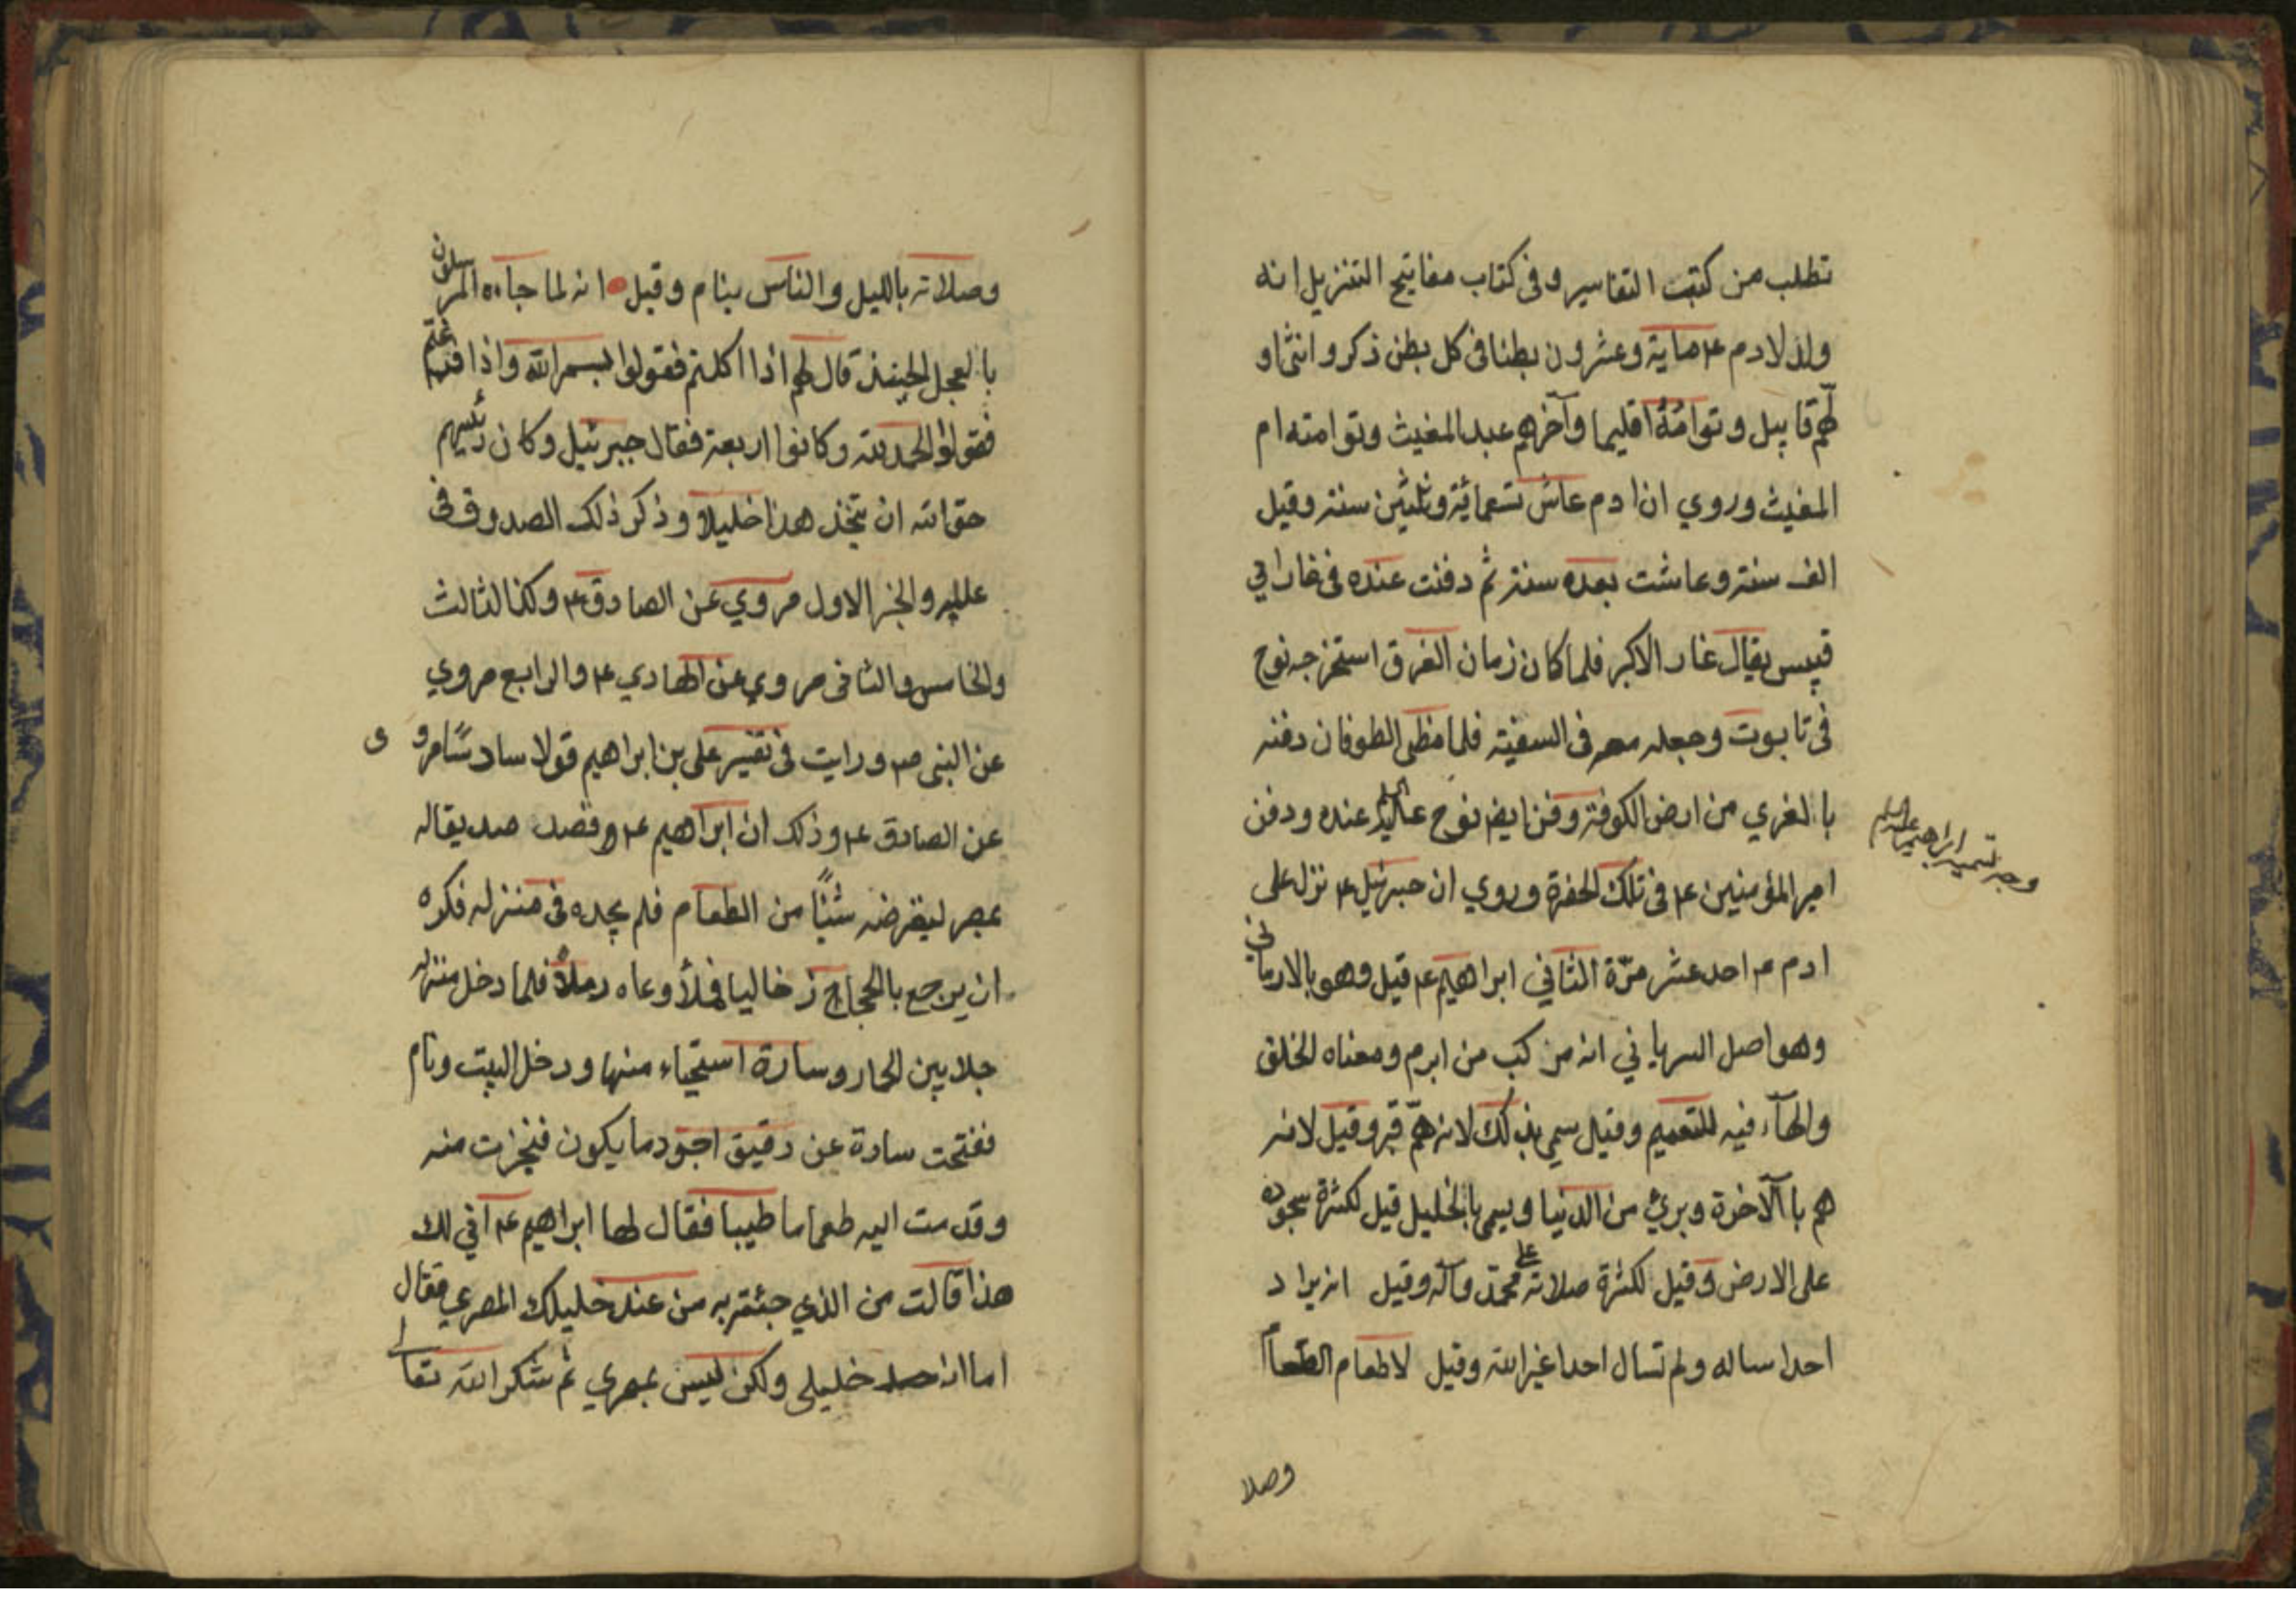 تطلب من كتب التفاسير وفى كتاب مفاتيح التنزيل انه
ولد لادم ع مماية وعشرون بطنا فى كل بطن ذكر وانثى او
لهم قابيل وتوامته اقليما وآخرهم عبد المغيث وتوامته ام
المغيث وروي ان ادم عاش تسعمائة وثلثين سنة وقيل
الف سنة وعاشت بعده سنة ثم دفنت عنده فى غار ابي
قبيس يقال غار الاكبر فلما كان زمان الغرق استخرجه نوح
فى تابوت وجعله معه فى السفينه فلما مظى الطوفان دفنه
بالغري من ارض الكوفة ودفن ايضا نوح عليه السلم عنده ودفن
امير المؤمنين ع فى تلك الحفرة وروي ان جبرئيل ع نزل على
ادم ع احد عشر مرّة الثاني ابراهيم ع قيل وهو بالارماني
وهو اصل السرياني انه مركب من ابرم ومعناه الخلق
والهآء فيه للتعميم وقيل سمي بذلك لانه همّ فبر وقيل لانه
هم بالآخرة وبرئ من الدنيا ويسمى بالخليل قيل لكثرة سجوده
على الارض وقيل لكثرة صلاته على محمّد وآله وقيل انه يراد
احدا ساله ولم تسأل احدا غير الله وقيل لاطعام الطعام
وجه تسمية ابراهيم عليه السلم
وصلا
وصلاته بالليل والناس ينام وقيل انه لما جآءه المرسلون
بالعجل الحنيذ قال لهم اذا اكلتم فقولوا بسم الله واذا فرغتم
فقولوا الحمد لله وكانوا اربعة فقال جبرئيل وكان رئيسهم
حق الله ان يتخذ هذا خليلا وذكر ذلك الصدوق فى
علله والخبر الاول مروي عن الصادق ع وكذا الثالث
والخامس والثانى مروي عن الهادي ع والرابع مروي
عن النبى ص ورايت فى تفسير على بن ابراهيم قولا سادسًا مرو ى
عن الصادق ع وذلك ان ابراهيم ع قصد صديقا له
بمصر ليقرضه شيئًا من الطعام فلم يجده فى منزله فكره
ان يرجع بالحمار خاليا فملأ وعاه رملاً فلما دخل منزله
خلا بين الحمار وسارة استحياء منها ودخل البيت ونام
ففتحت سارة عن دقيق اجود ما يكون فخبزت منه
وقدمت اليه طعاما طيبا فقال لها ابراهيم ع انى لك
هذا قالت من الذي جئت به من عند خليلك المصري فقال
اما انه خليلى ولكن ليس بمصري ثم شكر الله تعالى